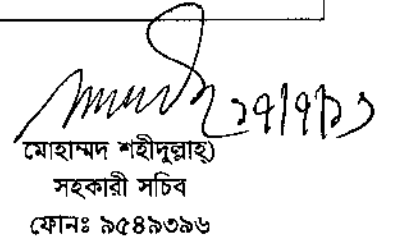 ১৭/৭/১৩
মোহাম্মদ শহীদুল্লাহ্)
সহকারী সচিব
ফোনঃ ৯৫৪৯৩৯৬